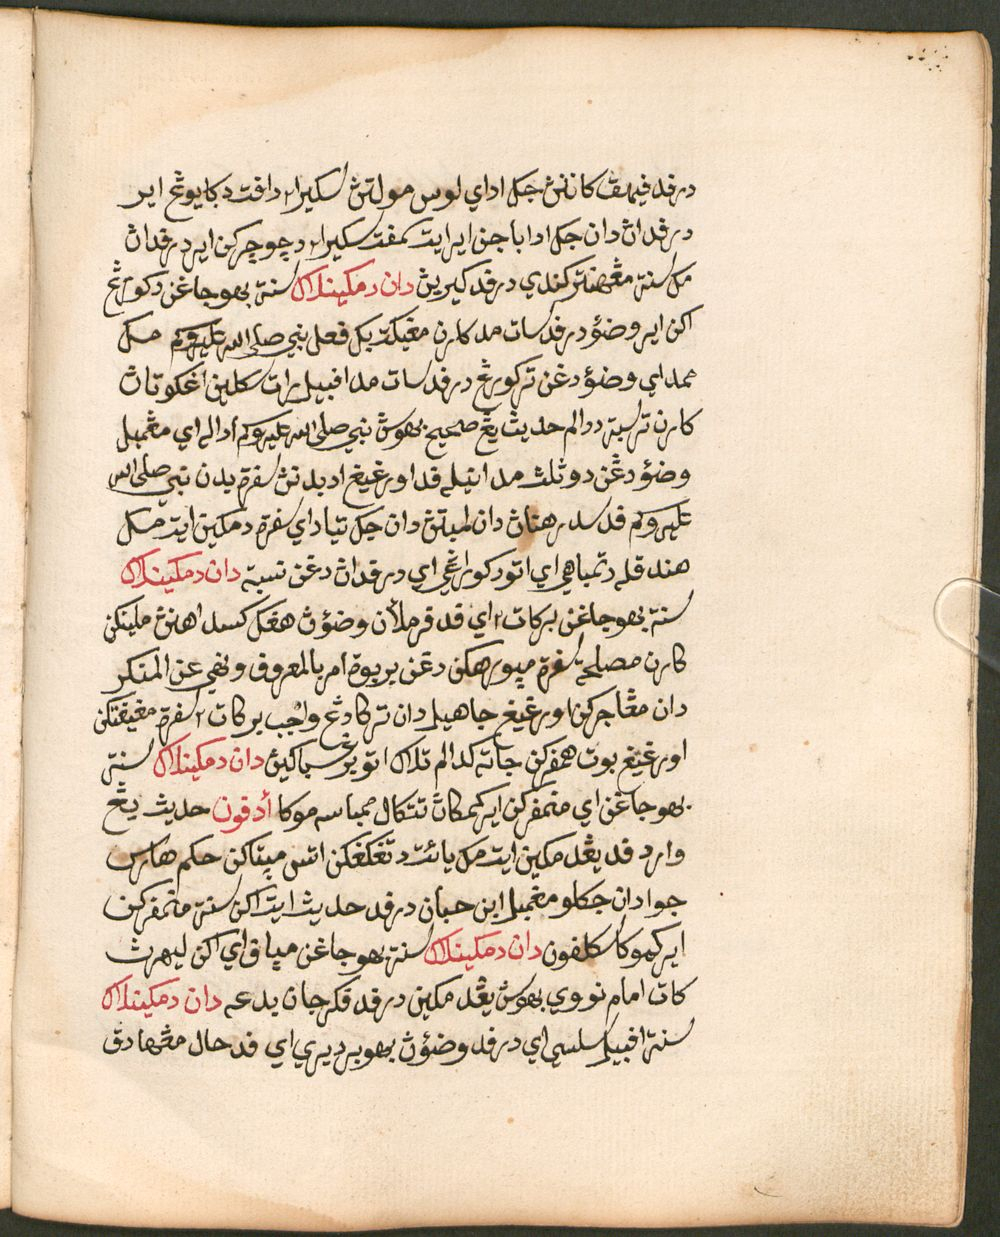 درفد فيهق كاننڽ جك اداي لوس مولتڽ سكيرا٢ داڤت دكايوڠ اير
درفداڽ دان جك ادا باجن اير ايت سمڤت سكيرا٢ دچوچركن اير درفداڽ
مك سنة مڠهنتركندي درفد كيرين دان دمكينله سنة بهوجاڠن دكورڠ
اكن اير وضؤ درفد سات مد كارن مڠيكت بكي فعل نبي صلى الله عليه وسلم مك
ممداي وضؤ دڠن تركورڠ درفد سات مد افبيل رات سكلين اڠݢوتاڽ
كارن ترسبة ددالم حديث يڠ صحيح بهوس نبي صلى الله عليه وسلم اداله اي مڠمبل
وضؤ دڠن دوثلث مد اينله فد اورڠيڠ ادبدنڽ سفرة بدن نبي صلى الله
عليه وسلم فد سدرهناڽ دان لمبتڽ دان جك تياداي سفرة دمكين ايت مك
هندقله دتمباهي اي اتو دكورڠي اي درفداڽ دڠن نسبة دان دمكينله
سنة بهوجاڠن بركات٢ اي فد فرملأن وضؤڽ هڠݢ كسداهنڽ ملينكن
كارن مصلحة سفرة مپورهكن دڠن بربوة امر بالمعروف ونهي عن المنكر
دان مڠاجركن اورڠيڠ جاهيل دان تركادڠ واجب بركات٢ سفرة مڠيڠتكن
اورڠيڠ بوت همفركن جاته كدالم تلاݢ اتو برڠ سباݢيڽ دان دمكينله سنة
بهوجاڠن اي منمفركن اير كمكاڽ تتكال ممباسه موكا أدفون حديث يڠ
وارد فد يڠد مكين ايت مك يائت دتڠݢڠكن اتس مپتاكن حكم هارس
جوا دان جكلو مڠمبل ابن حبان درفد حديث ايت اكن سنة منمفركن
اير كموكا سكلفون دان دمكينله سنة بهوجاڠن مپاڤو اي اكن ليهرڽ
كات امام نووي بهوس يڠد مكين درفد فكرجان بدعه دان دمكينله
سنة افبيل سلسي اي درفد وضؤڽ بهو برديري اي فد حال مڠهادڤ